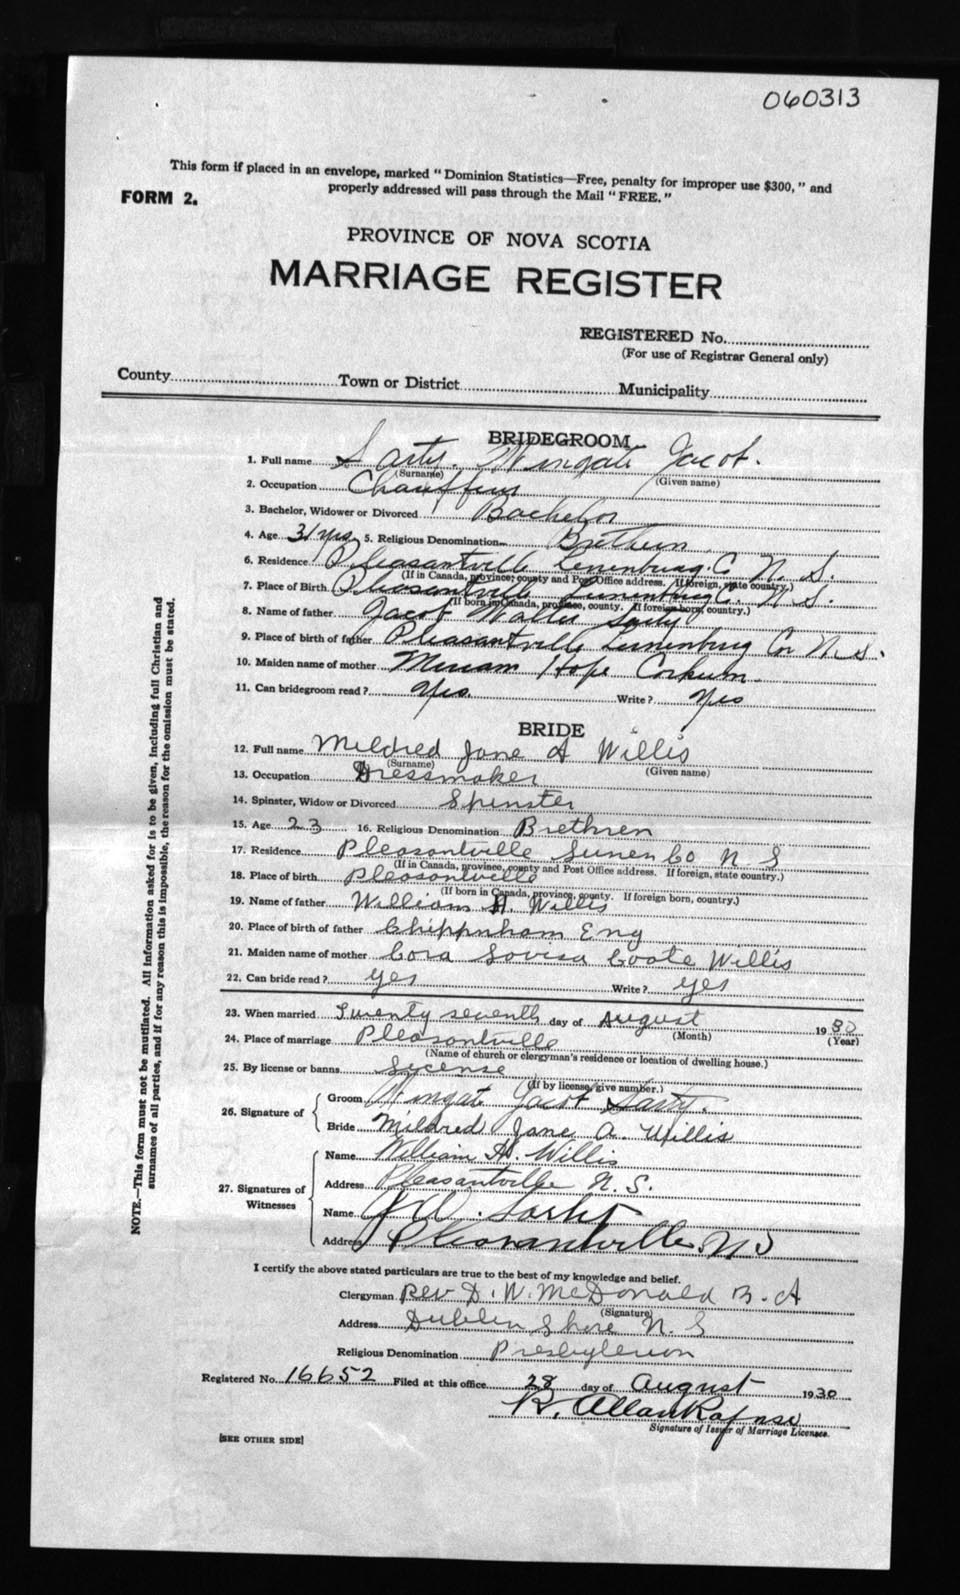 060313
This form if placed in an envelope, marked "Dominion Statistics—Free, penalty for improper use $300," and
properly addressed will pass through the Mail "FREE."
FORM 2.
PROVINCE OF NOVA SCOTIA
MARRIAGE REGISTER
REGISTERED No.
(For use of Registrar General only)
County Town or District Municipality
BRIDEGROOM
1. Full name Sarty. Wingate Jacob.
(Surname) (Given name)
2. Occupation Chauffeur
3. Bachelor, Widower or Divorced Bachelor
4. Age 31 yrs 5. Religious Denomination Brethern
6. Residence Pleasantville Lunenburg Co N. S.
(If in Canada, province, county and Post Office address. If foreign, state country.)
7. Place of Birth Pleasantville Lunenburg Co. N. S.
(If born in Canada, province, county. If foreign born, country.)
8. Name of father Jacob Sarty
9. Place of birth of father Pleasantville Lunenburg Co N. S.
10. Maiden name of mother Miriam Hope Corkum
11. Can bridegroom read? Yes Write? Yes
BRIDE
12. Full name Mildred Jane A Willis
(Surname) (Given name)
13. Occupation Dressmaker
14. Spinster, Widow or Divorced Spinster
15. Age 23 16. Religious Denomination Brethren
17. Residence Pleasantville Lunen Co N S
(If in Canada, province, county and Post Office address. If foreign, state country.)
18. Place of birth Pleasantville
(If born in Canada, province, county. If foreign born, country.)
19. Name of father William H. Willis
20. Place of birth of father Chippnham Eng
21. Maiden name of mother Cora Lovisa Coote Willis
22. Can bride read? yes Write? yes
23. When married Twenty seventh day of August 1930
(Month) (Year)
24. Place of marriage Pleasantville
(Name of church or clergyman's residence or location of dwelling house.)
25. By license or banns License
(If by license, give number.)
26. Signature of Groom Wingate Jacob Sarty.
Bride Mildred Jane A. Willis
27. Signatures of Witnesses Name William H. Willis
Address Pleasantville N. S.
Name J W.
Address Pleasantville N S
I certify the above stated particulars are true to the best of my knowledge and belief.
Clergyman Rev D. W. McDonald B. A
(Signature)
Address Dublin Shore N. S
Religious Denomination Presbyterian
Registered No. 16652 Filed at this office 28 day of August 1930
R. Allan Rafuse
Signature of Issuer of Marriage Licenses.
[SEE OTHER SIDE]
NOTE.—This form must not be mutilated. All information asked for is to be given, including full Christian and
surnames of all parties, and if for any reason this is impossible, the reason for the omission must be stated.